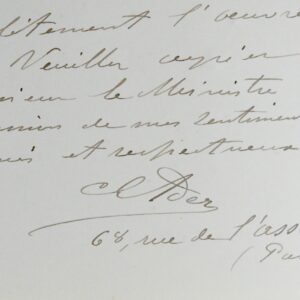 lètement l'œuvre
Veuillez agréer
sieur le Ministre
de mes sentiment
et respectueux
C Ader
68, rue de l'ass
(Par